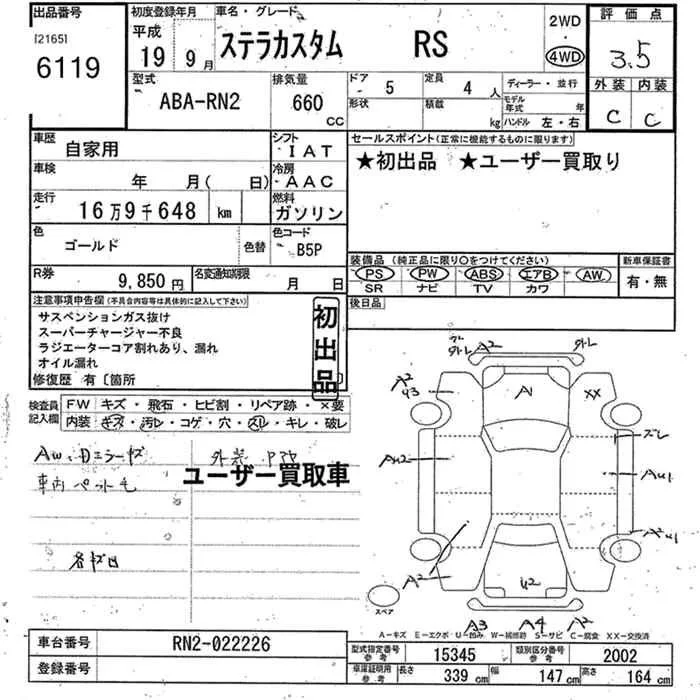 出品番号
[2165]
6119
初度登録年月
平成
19 9月
車名・グレード
ステラカスタム RS
2WD
4WD
評価点
3.5
外装 内装
C C
型式
ABA-RN2
排気量
660 CC
ドア 5
形状
定員 4人
積載 kg
ディーラー・並行
モデル年式 年
ハンドル 左・右
車歴
自家用
シフト
IAT
車検
年 月( 日)
冷房
AAC
走行
16万9千648 km
燃料
ガソリン
色
ゴールド
色替
色コード
B5P
R券
9,850円
名変通知期限
月 日
セールスポイント(正常に機能するものに限ります)
★初出品 ★ユーザー買取り
装備品(純正品に限り○をつけてください)
PS PW ABS エアB AW
SR ナビ TV カワ
新車保証書
有・無
後日品
注意事項申告欄(不具合内容等は具体的に記入して下さい)
サスペンションガス抜け
スーパーチャージャー不良
ラジエーターコア割れあり、漏れ
オイル漏れ
修復歴 有〔箇所
初出品
検査員記入欄
FW キズ・飛石・ヒビ割・リペア跡・×要
内装 キズ・汚レ・コゲ・穴・スレ・キレ・破レ
ユーザー買取車
A2
A1
XX
A2
ズレ
AU2
AU1
A2
U2
A3 A4 A2
スペア
A-キズ E-エクボ U-凹み W-補修跡 S-サビ C-腐食 XX-交換済
車台番号
RN2-022226
登録番号
型式指定番号
参考
15345
類別区分番号
参考
2002
車庫証明用
参考
長さ 339 cm
幅 147 cm
高さ 164 cm